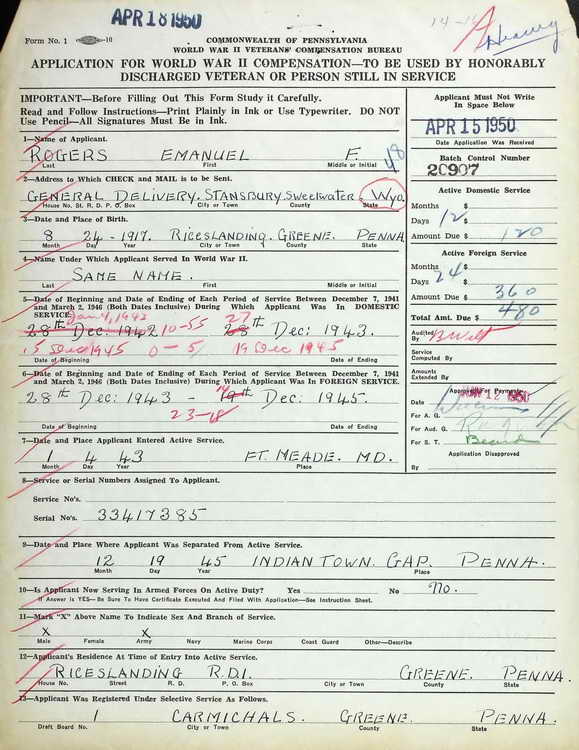 APR 18 1950
Form No. 1 -10
COMMONWEALTH OF PENNSYLVANIA
WORLD WAR II VETERANS' COMPENSATION BUREAU
APPLICATION FOR WORLD WAR II COMPENSATION—TO BE USED BY HONORABLY
DISCHARGED VETERAN OR PERSON STILL IN SERVICE
IMPORTANT—Before Filling Out This Form Study it Carefully.
Read and Follow Instructions—Print Plainly in Ink or Use Typewriter. DO NOT
Use Pencil—All Signatures Must Be in Ink.
1—Name of Applicant.
ROGERS EMANUEL F.
Last First Middle or Initial
2—Address to Which CHECK and MAIL is to be Sent.
GENERAL DELIVERY. STANSBURY. Sweetwater Wyo.
House No. St. R. D. P. O. Box City or Town County State
3—Date and Place of Birth.
8 24 - 1917. RICESLANDING. GREENE. PENNA
Month Day Year City or Town County State
4—Name Under Which Applicant Served In World War II.
SAME NAME.
Last First Middle or Initial
5—Date of Beginning and Date of Ending of Each Period of Service Between December 7, 1941
and March 2, 1946 (Both Dates Inclusive) During Which Applicant Was In DOMESTIC
SERVICE.
Jan 4, 1943 27
28th Dec. 1942 10-55 28th Dec: 1943.
15 Dec 1945 0-5 19 Dec 1945
Date of Beginning Date of Ending
6—Date of Beginning and Date of Ending of Each Period of Service Between December 7, 1941
and March 2, 1946 (Both Dates Inclusive) During Which Applicant Was In FOREIGN SERVICE.
28th Dec: 1943 - 19th Dec: 1945.
14
23-18
Date of Beginning Date of Ending
7—Date and Place Applicant Entered Active Service.
1 4 43 FT. MEADE. MD.
Month Day Year Place
8—Service or Serial Numbers Assigned To Applicant.
Service No's.
Serial No's. 33417385
9—Date and Place Where Applicant Was Separated From Active Service.
12 19 45 INDIAN TOWN. GAP. PENNA.
Month Day Year Place
10—Is Applicant Now Serving In Armed Forces On Active Duty? Yes No no.
If Answer is YES—Be Sure To Have Certificate Executed And Filed With Application—See Instruction Sheet.
11—Mark "X" Above Name To Indicate Sex And Branch of Service.
X X
Male Female Army Navy Marine Corps Coast Guard Other—Describe
12—Applicant's Residence At Time of Entry Into Active Service.
RICESLANDING R.D.1. GREENE. PENNA.
House No. Street R. D. P. O. Box City or Town County State
13—Applicant Was Registered Under Selective Service As Follows.
1 CARMICHALS. GREENE. PENNA.
Draft Board No. City or Town County State
Applicant Must Not Write
In Space Below
APR 15 1950
Date Application Was Received
Batch Control Number
20907
Active Domestic Service
Months $
Days 12 $
Amount Due $ 120
Active Foreign Service
Months 24 $
Days $
Amount Due $ 360
Total Amt. Due $ 480
Audited
By
Service
Computed By
Amounts
Extended By
Approved For Payment
Date 12 1950
For A. G.
For Aud. G.
For S. T. Beard
Application Disapproved
By